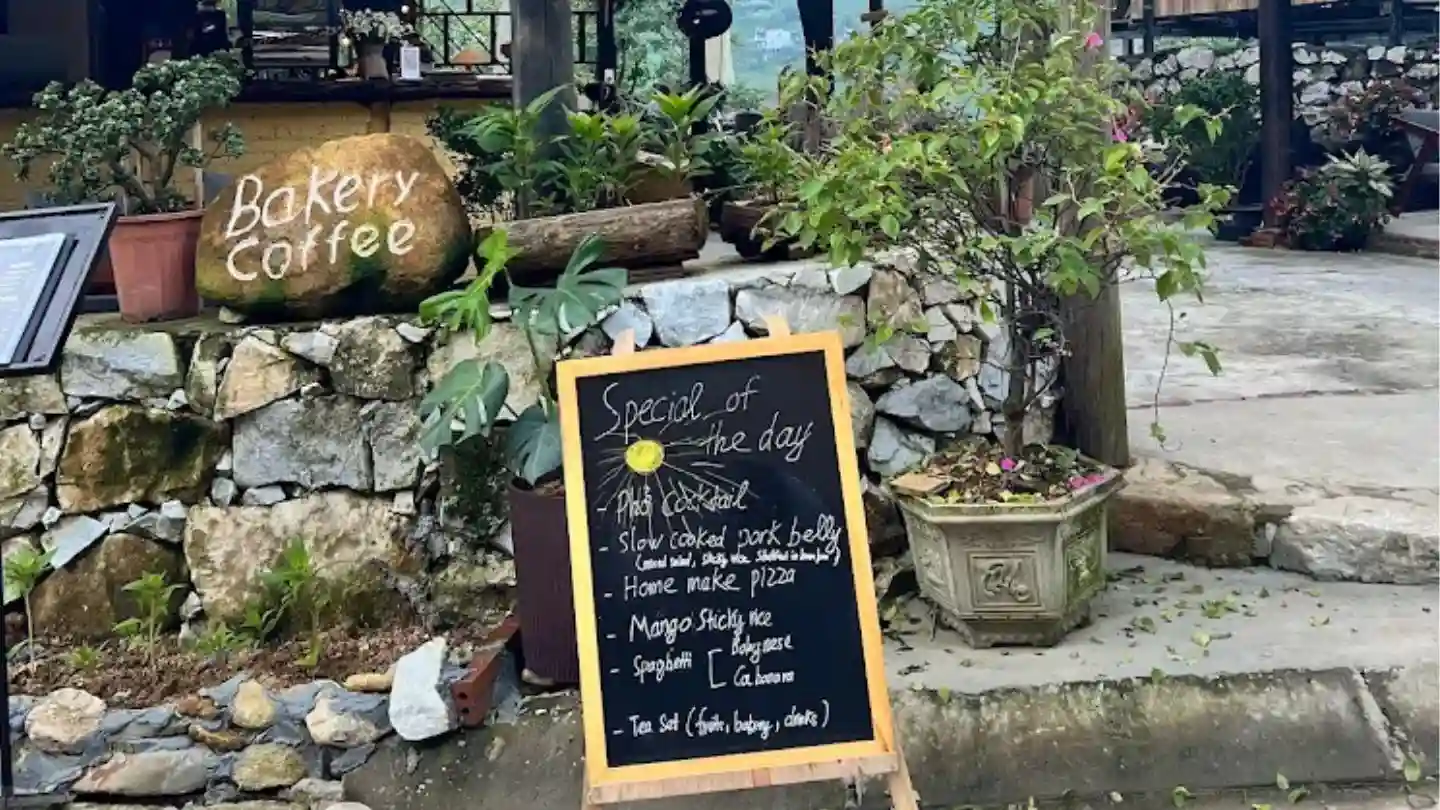 Bakery
Coffee
Special of
the day
- Phở cocktail
- Slow cooked pork belly
- Home make pizza
- Mango Sticky rice
- Spaghetti [ Bolognese
Carbonara
- Tea Set (fruits, bakery, drinks)